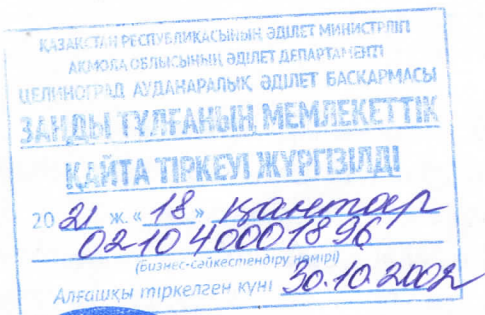 ҚАЗАҚСТАН РЕСПУБЛИКАСЫНЫҢ ӘДІЛЕТ МИНИСТРЛІГІ
АҚМОЛА ОБЛЫСЫНЫҢ ӘДІЛЕТ ДЕПАРТАМЕНТІ
ЦЕЛИНОГРАД АУДАНАРАЛЫҚ ӘДІЛЕТ БАСҚАРМАСЫ
ЗАҢДЫ ТҰЛҒАНЫҢ МЕМЛЕКЕТТІК
ҚАЙТА ТІРКЕУІ ЖҮРГІЗІЛДІ
20 21 ж. «18» қаңтар
021040001896
(бизнес-сәйкестендіру нөмірі)
Алғашқы тіркелген күні 30.10.2002